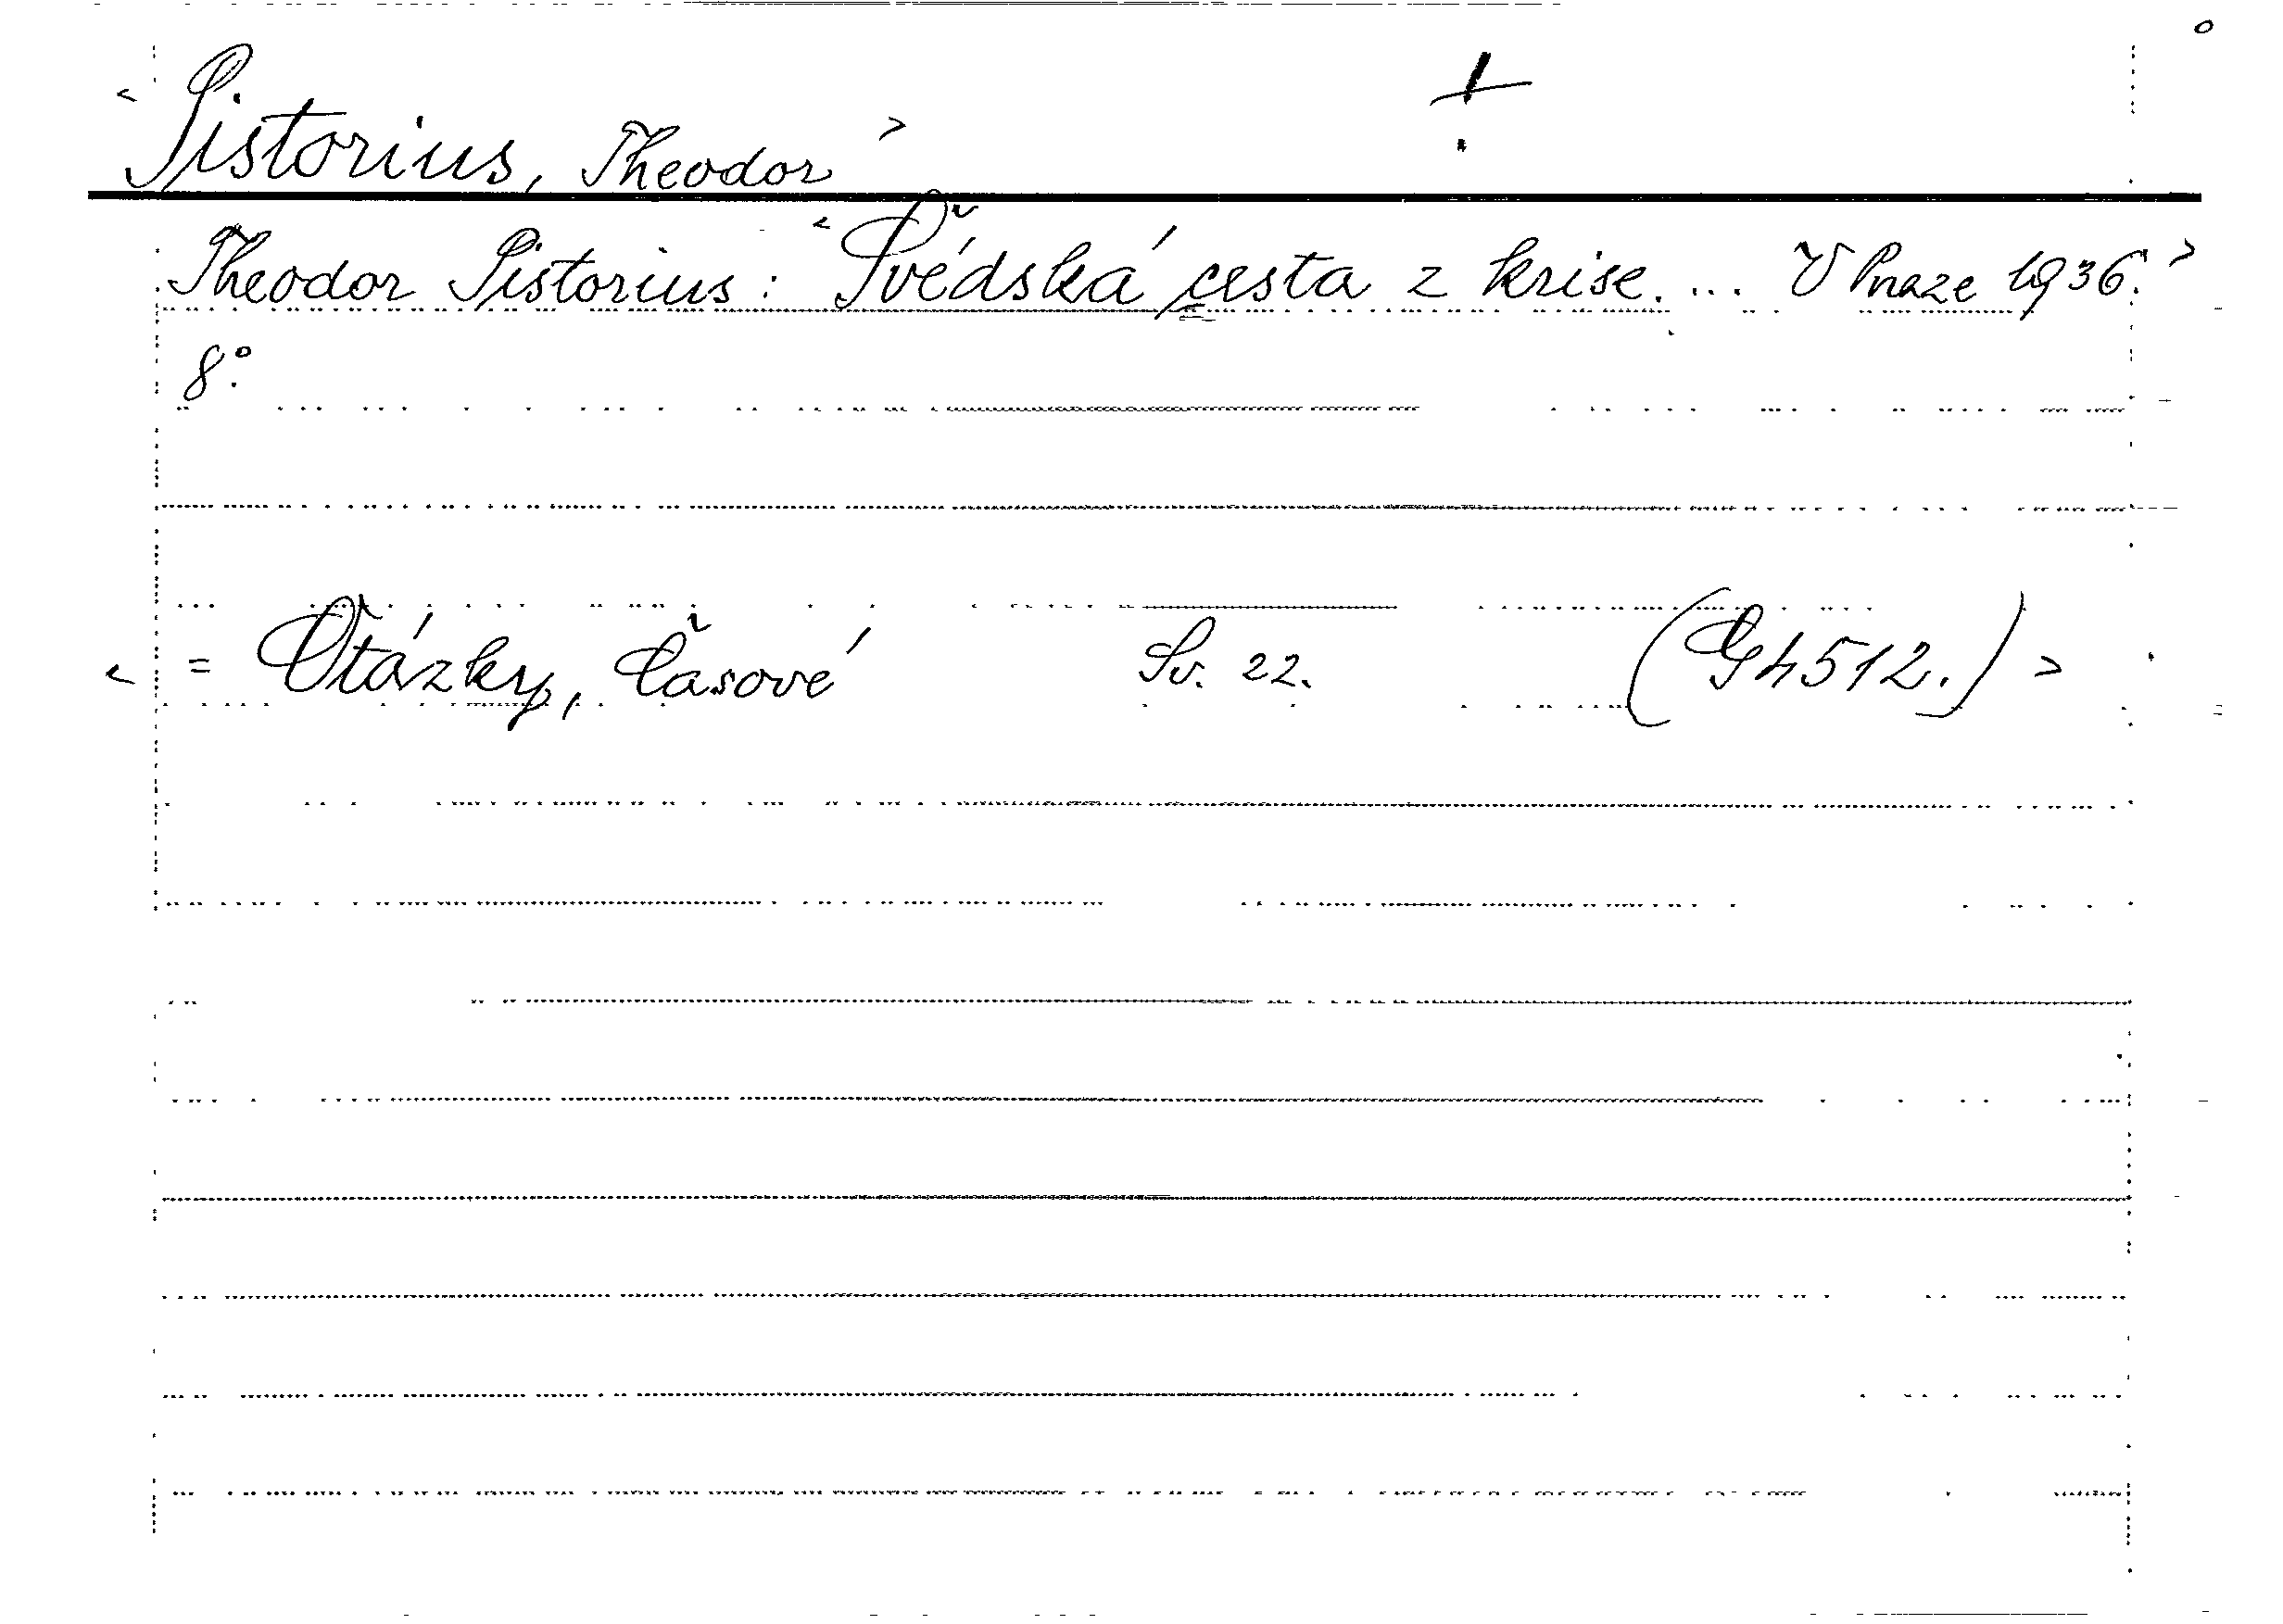 < Pistorius, Theodor >
Theodor Pistorius: < Švédská cesta z krise. ... V Praze 1936. >
8°.
< = Otázky, Časové Sv. 22. (G4512.) >